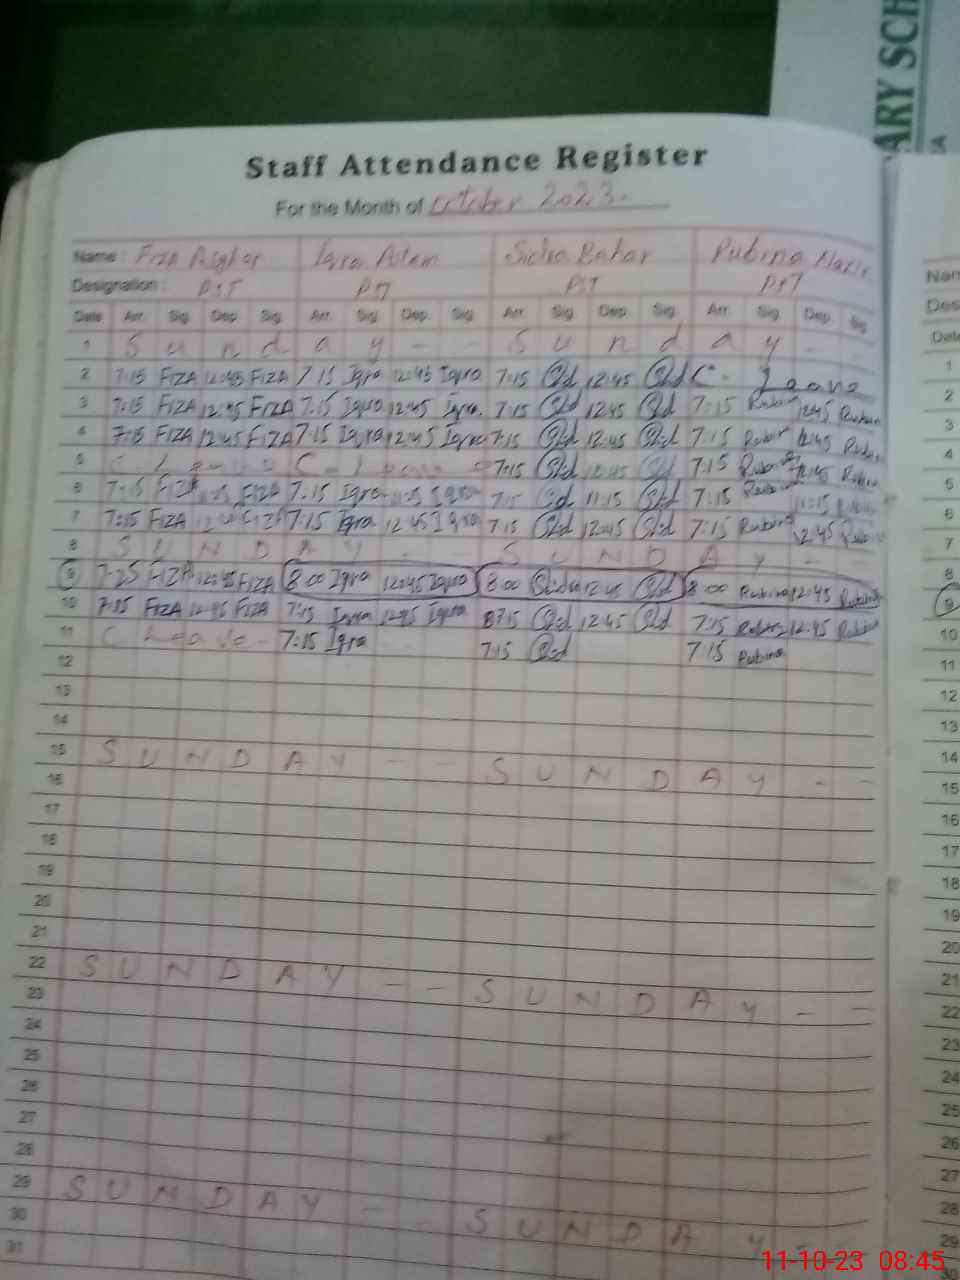 ARY SCH
Staff Attendance Register
For the Month of October 2023.
Name: Fiza Asghar Iqra Aslam Sidra Bahar Rubina Nazir
Designation: PST PST PST PST
Date Arr. Sig. Dep. Sig. Arr. Sig. Dep. Sig. Arr. Sig. Dep. Sig. Arr. Sig. Dep. Sig.
1 S u n d a y - - S u n d a y - -
2 7:15 FIZA 12:45 FIZA 7:15 Iqra 12:45 Iqra 7:15 12:45 C. Leave
3 7:15 FIZA 12:45 FIZA 7:15 Iqra 12:45 Iqra. 7:15 12:45 7:15 Rubina 12:45 Rubina
4 7:15 FIZA 12:45 FIZA 7:15 Iqra 12:45 Iqra 7:15 12:45 7:15 Rubina 12:45 Rubina
5 C - Leave C - Leave 7:15 12:45 7:15 Rubina 12:45 Rubina
6 7:15 FIZA 11:15 FIZA 7:15 Iqra 11:15 Iqra 7:15 11:15 7:15 Rubina 11:15 Rubina
7 7:15 FIZA 12:45 FIZA 7:15 Iqra 12:45 Iqra 7:15 12:45 7:15 Rubina 12:45 Rubina
8 S U N D A Y - - S U N D A Y - -
9 7:25 FIZA 12:45 FIZA 8:00 Iqra 12:45 Iqra 8:00 12:45 8:00 Rubina 12:45 Rubina
10 7:15 FIZA 12:45 FIZA 7:15 Iqra 12:45 Iqra 7:15 12:45 7:15 Rubina 12:45 Rubina
11 C Leave - 7:15 Iqra 7:15 7:15 Rubina
12
13
14
15 S U N D A Y - - S U N D A Y - -
16
17
18
19
20
21
22 S U N D A Y - - S U N D A Y - -
23
24
25
26
27
28
29 S U N D A Y - - S U N D A Y - -
30
31
Nam
Des
Date
1
2
3
4
5
6
7
8
9
10
11
12
13
14
15
16
17
18
19
20
21
22
23
24
25
26
27
28
29
30
11-10-23 08:45